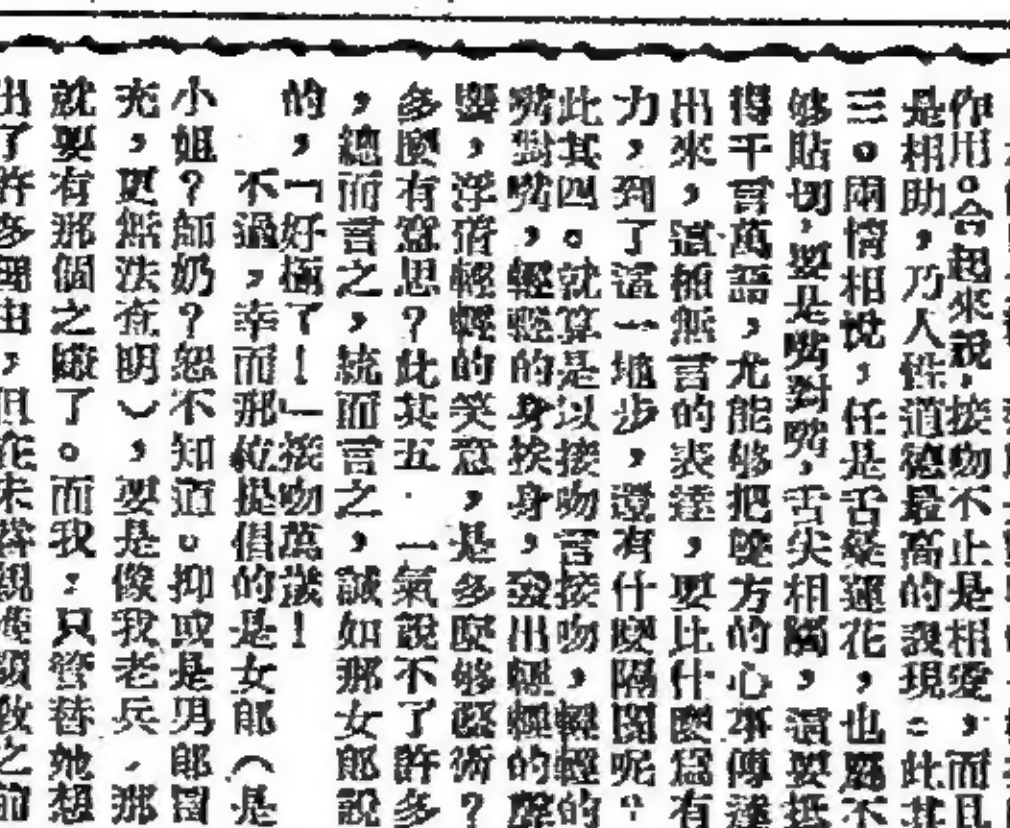 作用。合起來說，接吻不止是相愛，而且
是相助，乃人性道德最高的表現：此其
三。兩情相悅，任是舌燦蓮花，也壓不
够貼切，要是嘴對嘴，舌尖相觸，這要抵
得千言萬語，尤能够把雙方的心事傳達
出來，這種無言的表達，要比什麼爲有
力，到了這一地步，還有什麼隔閡呢？
此其四。就算是以接吻言接吻，輕輕的
嘴對嘴，輕輕的身挨身，發出輕輕的聲
響，浮着輕輕的笑意，是多麼够藝術？
多麼有意思？此其五．一氣說不了許多
，總而言之，統而言之，誠如那女郎說
的，「好極了！」接吻萬歲！
不過，幸而那位提倡的是女郎（是
小姐？師奶？恕不知道。抑或是男郎冒
充，更無法查明），要是像我老兵．那
就要有那個之嫌了。而我：只管替她想
出了許多理由，但在未嘗親
之前